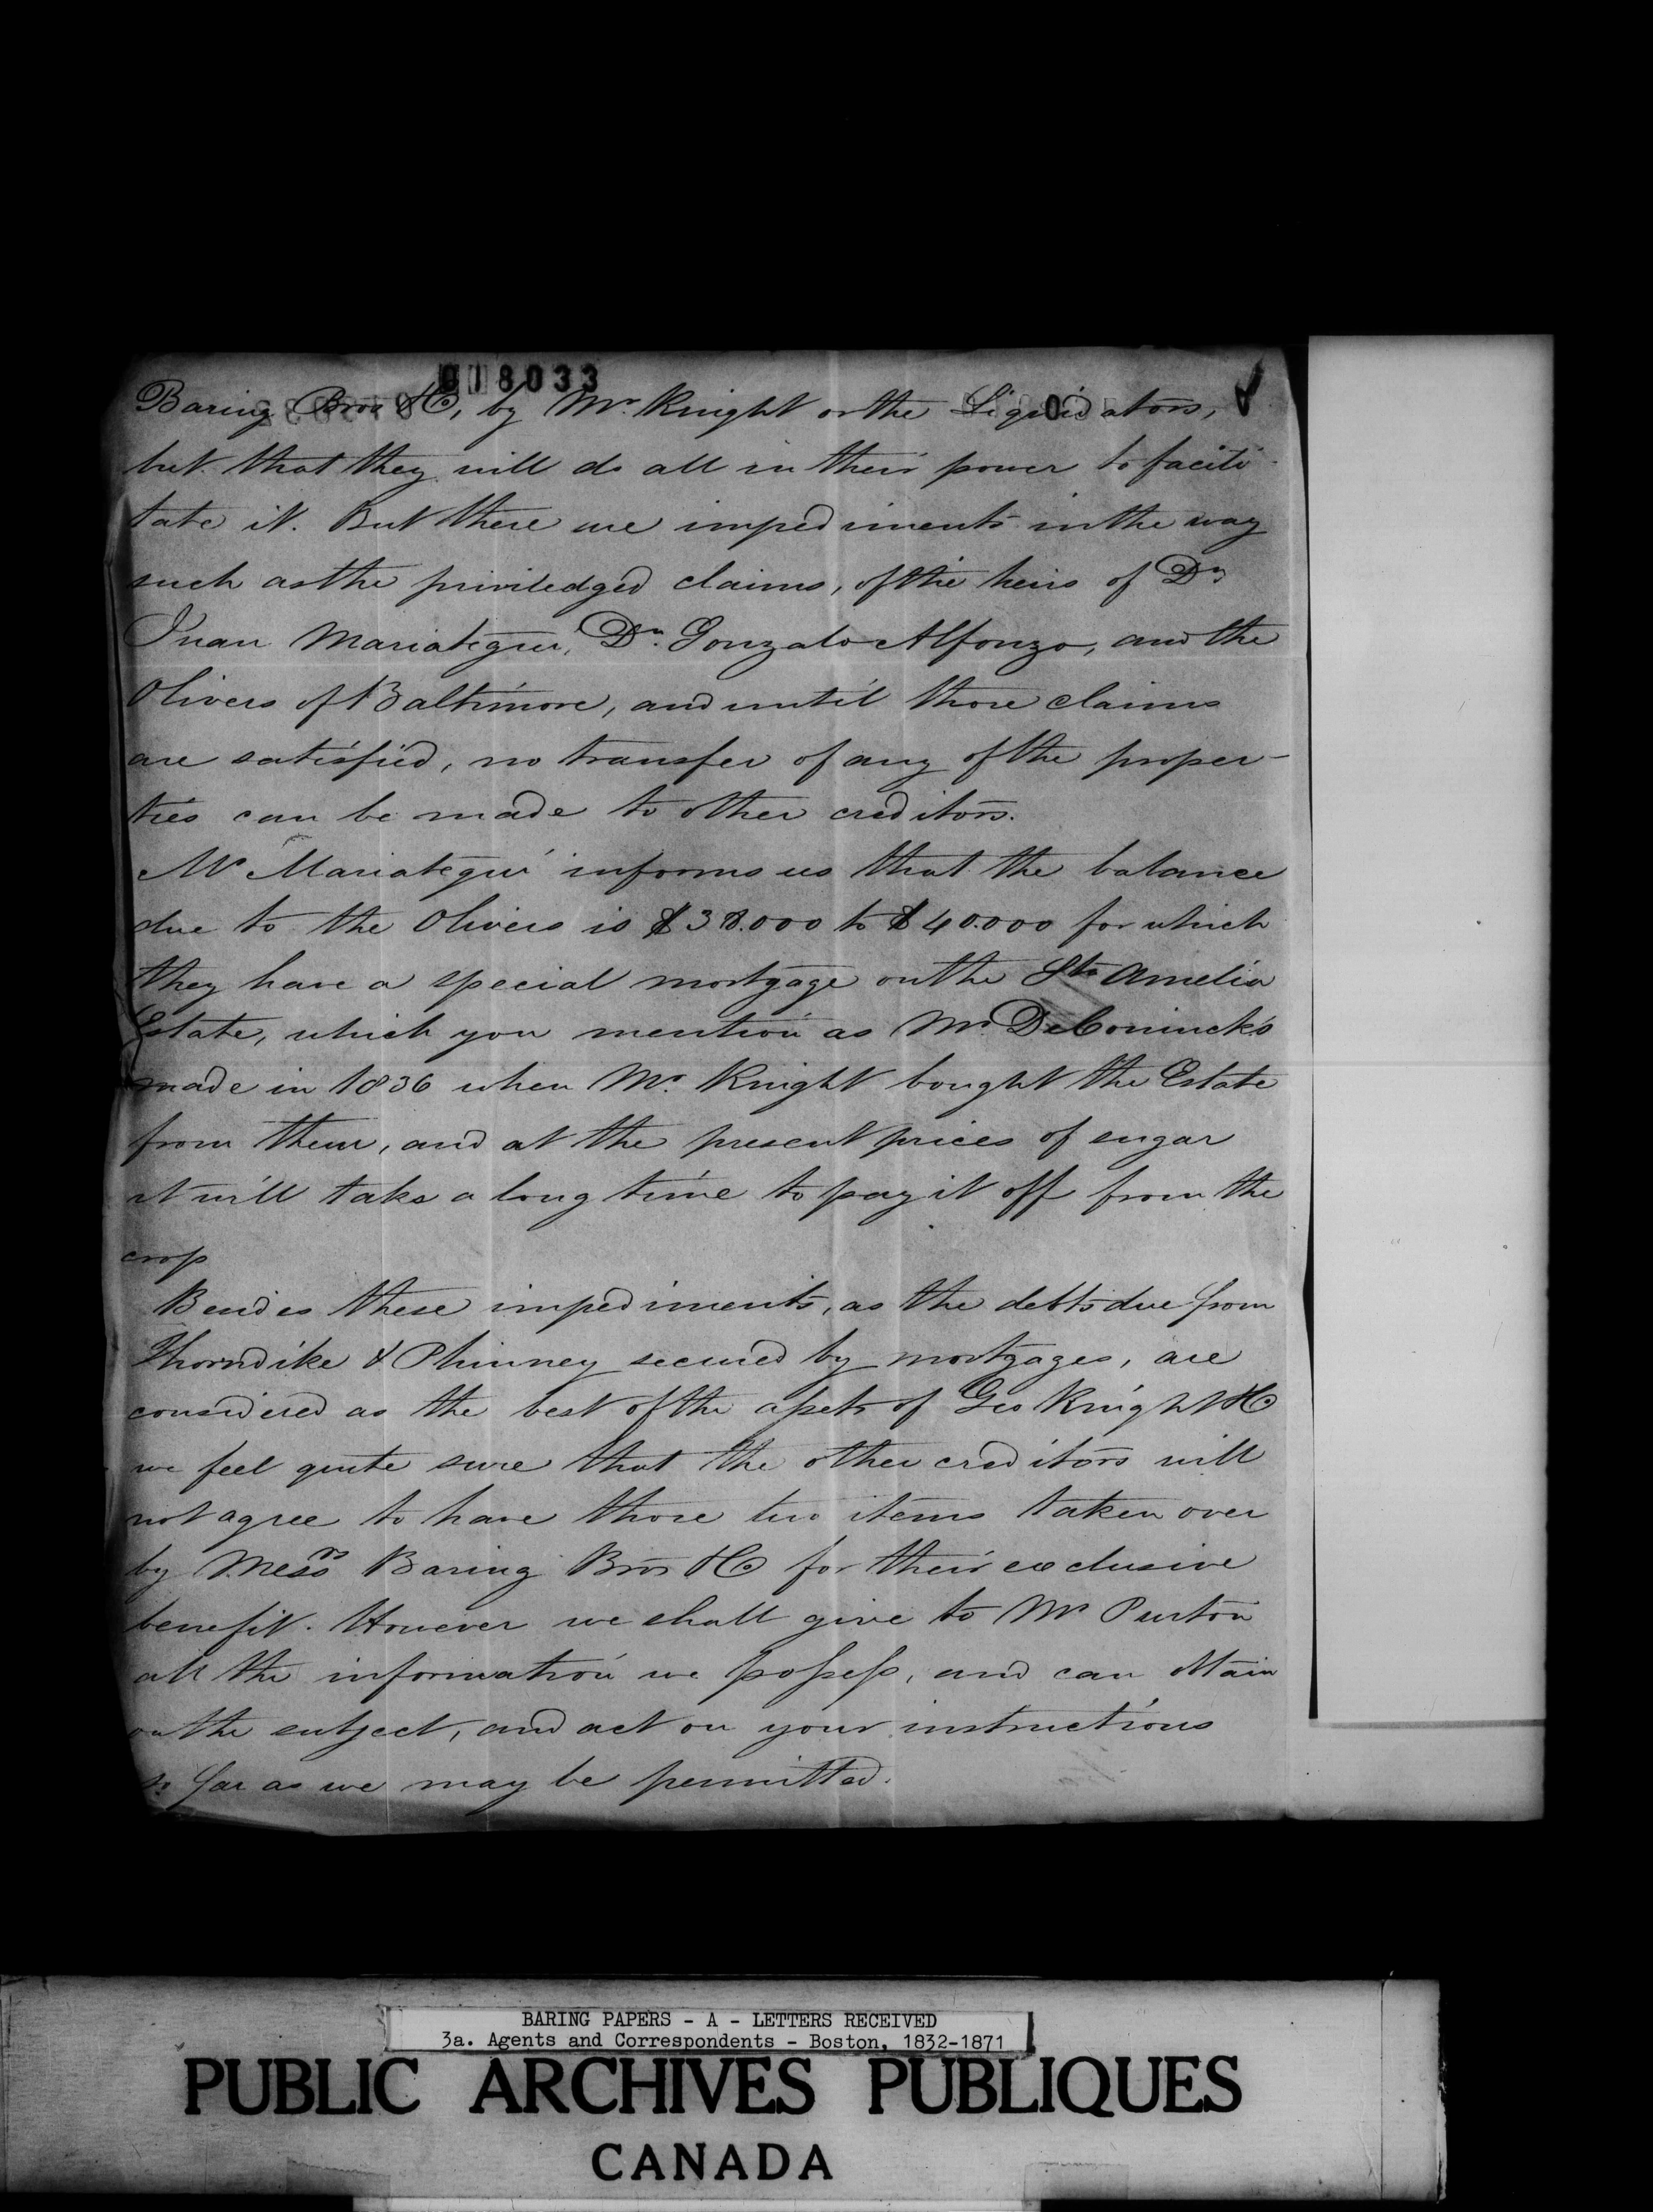 018033
Baring Bros & Co, by Mr. Knight or the Liquidators,
but that they will do all in their power to facili-
tate it. But there are impediments in the way
such as the priviledged claims, of the heirs of Dn
Juan Mariategui, Dn. Gonzalo Alfonzo, and the
Olivers of Baltimore, and until those claims
are satisfied, no transfer of any of the proper-
ties can be made to other creditors.
Mr Mariategui informs us that the balance
due to the Olivers is $38.000 to $40.000 for which
they have a special mortgage on the Sta Amelia
Estate, which you mention as Mr. DeConinck's
made in 1836 when Mr. Knight bought the Estate
from them, and at the present prices of sugar
it will take a long time to pay it off from the
crop
Besides these impediments, as the debts due from
Thorndike & Phinney secured by mortgages, are
considered as the best of the assets of Geo Knight & Co
we feel quite sure that the other creditors will
not agree to have those two items taken over
by Messrs Baring Bros & Co for their exclusive
benefit. However we shall give to Mr Purton
all the information we possess, and can obtain
on the subject, and act on your instructions
so far as we may be permitted.
BARING PAPERS - A - LETTERS RECEIVED
3a. Agents and Correspondents - Boston, 1832-1871
PUBLIC ARCHIVES PUBLIQUES
CANADA